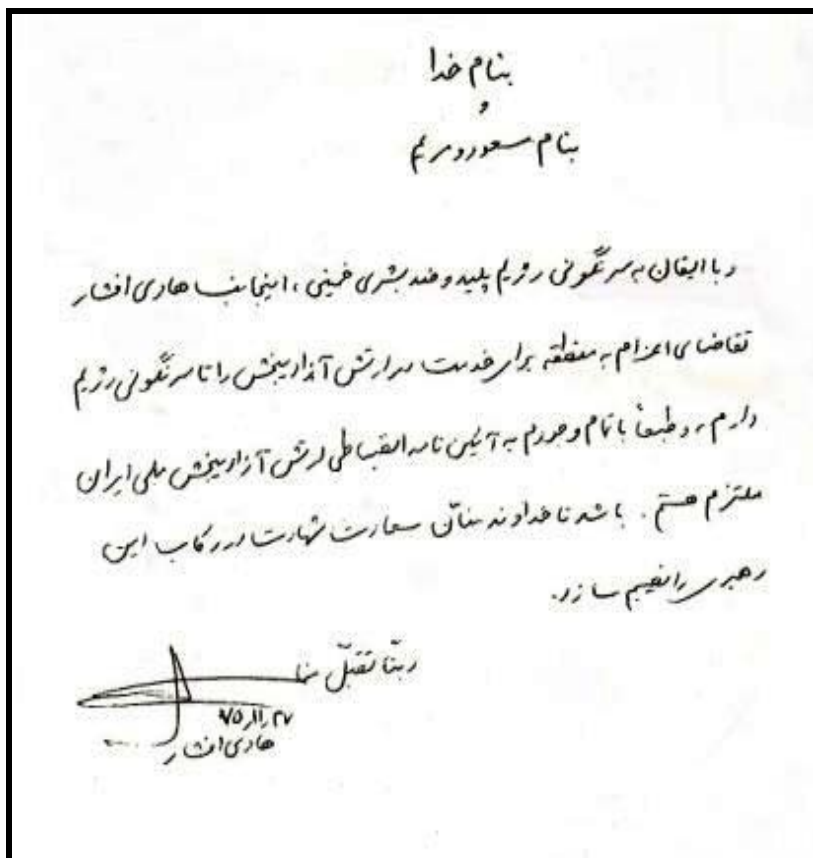 بنام خدا
و
بنام مسعود و مریم
و با ایقان به سرنگونی رژیم پلید و ضد بشری خمینی، اینجانب هادی افشار
تقاضای اعزام به منطقه برای خدمت در ارتش آزادیبخش را تا سرنگونی رژیم
دارم، و طبعاً با تمام وجودم به آئین نامه انضباطی ارتش آزادیبخش ملی ایران
ملتزم هستم. باشد تا خداوند منان سعادت شهادت در رکاب این
رهبری را نصیبم سازد.
ربنا تقبل منا
۷۵٫۱۱٫۲۷
هادی افشار